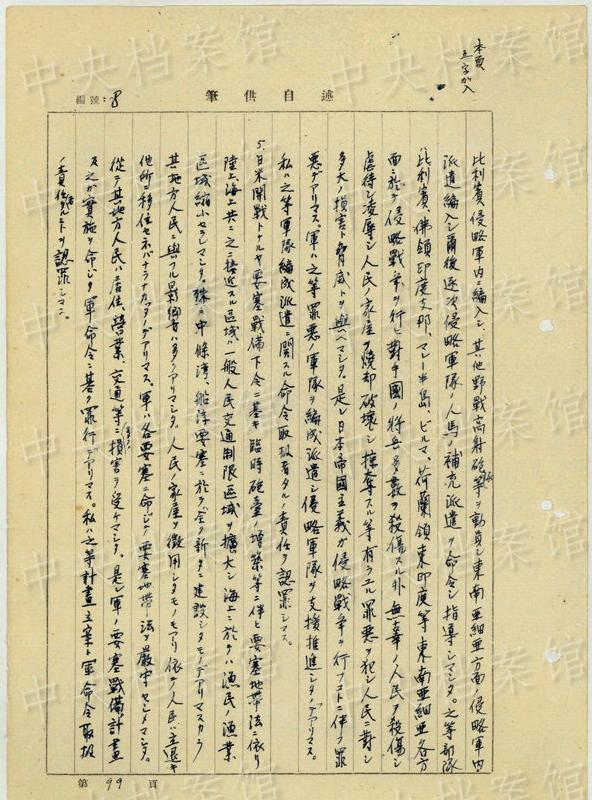 本頁
五字加入
述自供筆
編號:8
比利賓侵略軍內ニ編入シ其ノ他野戰高射砲隊等ヲ動員シ東南亜細亜方面ノ侵略軍內ニ
派遣編入シ爾後逐次侵略軍隊ノ人馬ノ補充派遣ヲ命令シ指導シマシタ。之等部隊
ハ比利賓、佛領印度支那、マレー半島、ビルマ、荷蘭領東印度等東南亜細亜各方
面ニ於テ侵略戰爭ヲ行ヒ對手國ノ將兵多數ヲ殺傷スル外無辜ノ人民ヲ殺傷シ
虐待シ凌辱シ人民ノ家屋ヲ燒却破壞シ掠奪スル等有ラユル罪惡ヲ犯シ人民ニ對シ
多大ノ損害ト脅威トヲ與ヘマシタ。是レ日本帝國主義ガ侵略戰爭ヲ行フコトニ伴フ罪
惡デアリマス。軍ハ之等罪惡ノ軍隊ヲ編成派遣シ侵略軍隊ヲ支援推進シタノデアリマス。
私ハ之等軍隊編成派遣ニ関スル命令取扱者タルノ責任ヲ認罪シマス。
5.日米開戰トナルヤ要塞戰備下令ニ基キ臨時砲臺ノ增築等ニ伴ヒ要塞地帶法ニ依リ
陸上、海上共ニ之ニ接近スル区域ハ一般人民交通制限区域ヲ擴大シ海上ニ於テハ漁民ノ漁業
区域縮小セラレマシタ。殊ニ中條湾、船浮要塞ニ於テハ全ク新タニ建設シタモノデアリマスカラ
其地方人民ニ與フル影響ハ多ノアリマシタ。人民ノ家屋ヲ徵用シタモノモアリ依テ人民ハ立退キ
他所ニ移住セネバナラナカッタノデアリマス。軍ハ各要塞ニ命ジテ要塞地帶法ヲ嚴守セシメマシタ。
從テ其地方人民ハ居住、營業、交通等ニ損害ヲ受ケマシタ。是レ軍ノ要塞戰備計畫
及之ガ實施ヲ命ジタ軍命令ニ基ク罪行デアリマス。私ハ之等計畫立案ト軍命令取扱
ノ責任者タルコトヲ認罪シマス。
第99頁